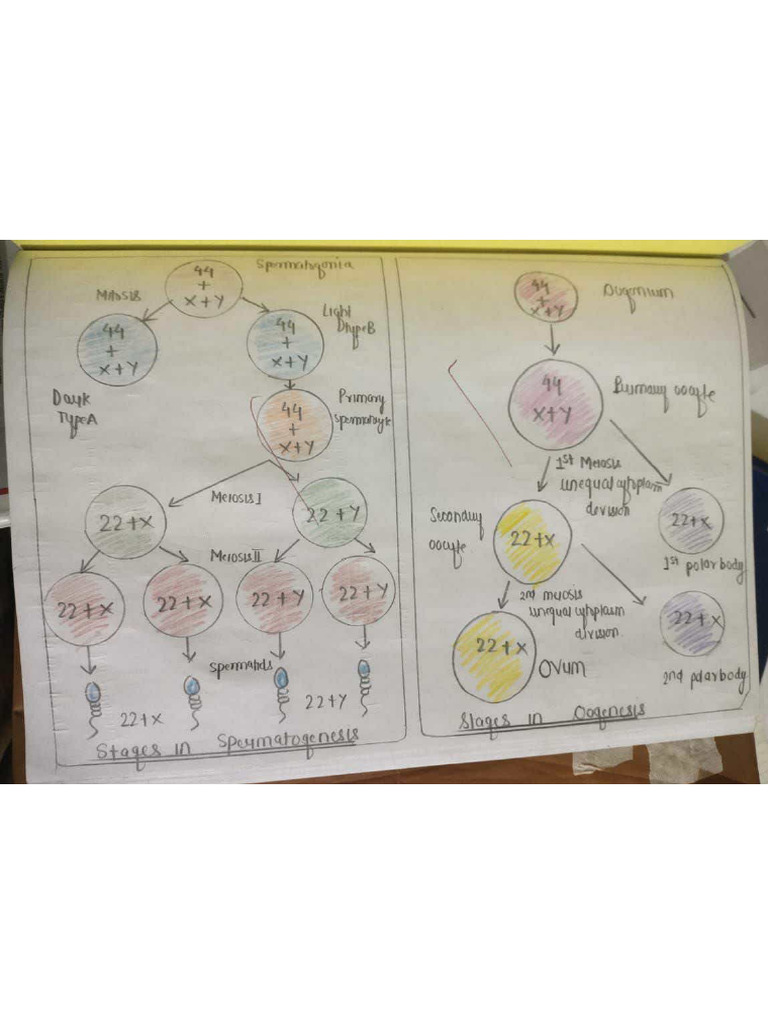 Spermatogonia
44
+
X+Y
Mitosis
44
+
X+Y
44
+
X+Y
Light
DtypeB
Dark
TypeA
44
+
X+Y
Primary
spermatocyte
Meiosis I
22+X
22+Y
Meiosis II
22+X
22+X
22+Y
22+Y
spermatids
22+X
22+Y
Stages in Spermatogenesis
44
+
X+Y
Oogonium
44
X+Y
Primary oocyte
1st Meiosis
unequal cytoplasm
division
Secondary
oocyte
22+X
22+X
1st polar body
2nd miosis
unequal cytoplasm
division
22+X
Ovum
22+X
2nd polar body
Stages in Oogenesis